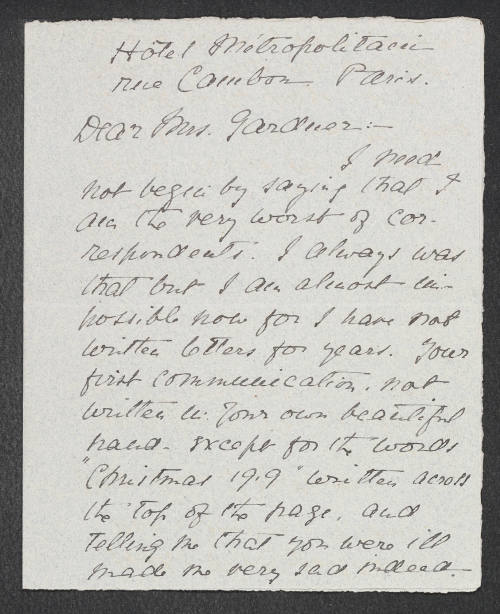 Hôtel Métropolitain
rue Cambon Paris.
Dear Mrs. Gardner:—
I need
not begin by saying that I
am the very worst of cor-
respondents. I always was
that but I am almost im-
possible now for I have not
written letters for years. Your
first communication, not
written in your own beautiful
hand - except for the words
"Christmas 1919" written across
the top of the page, and
telling me that you were ill
made me very sad indeed.—